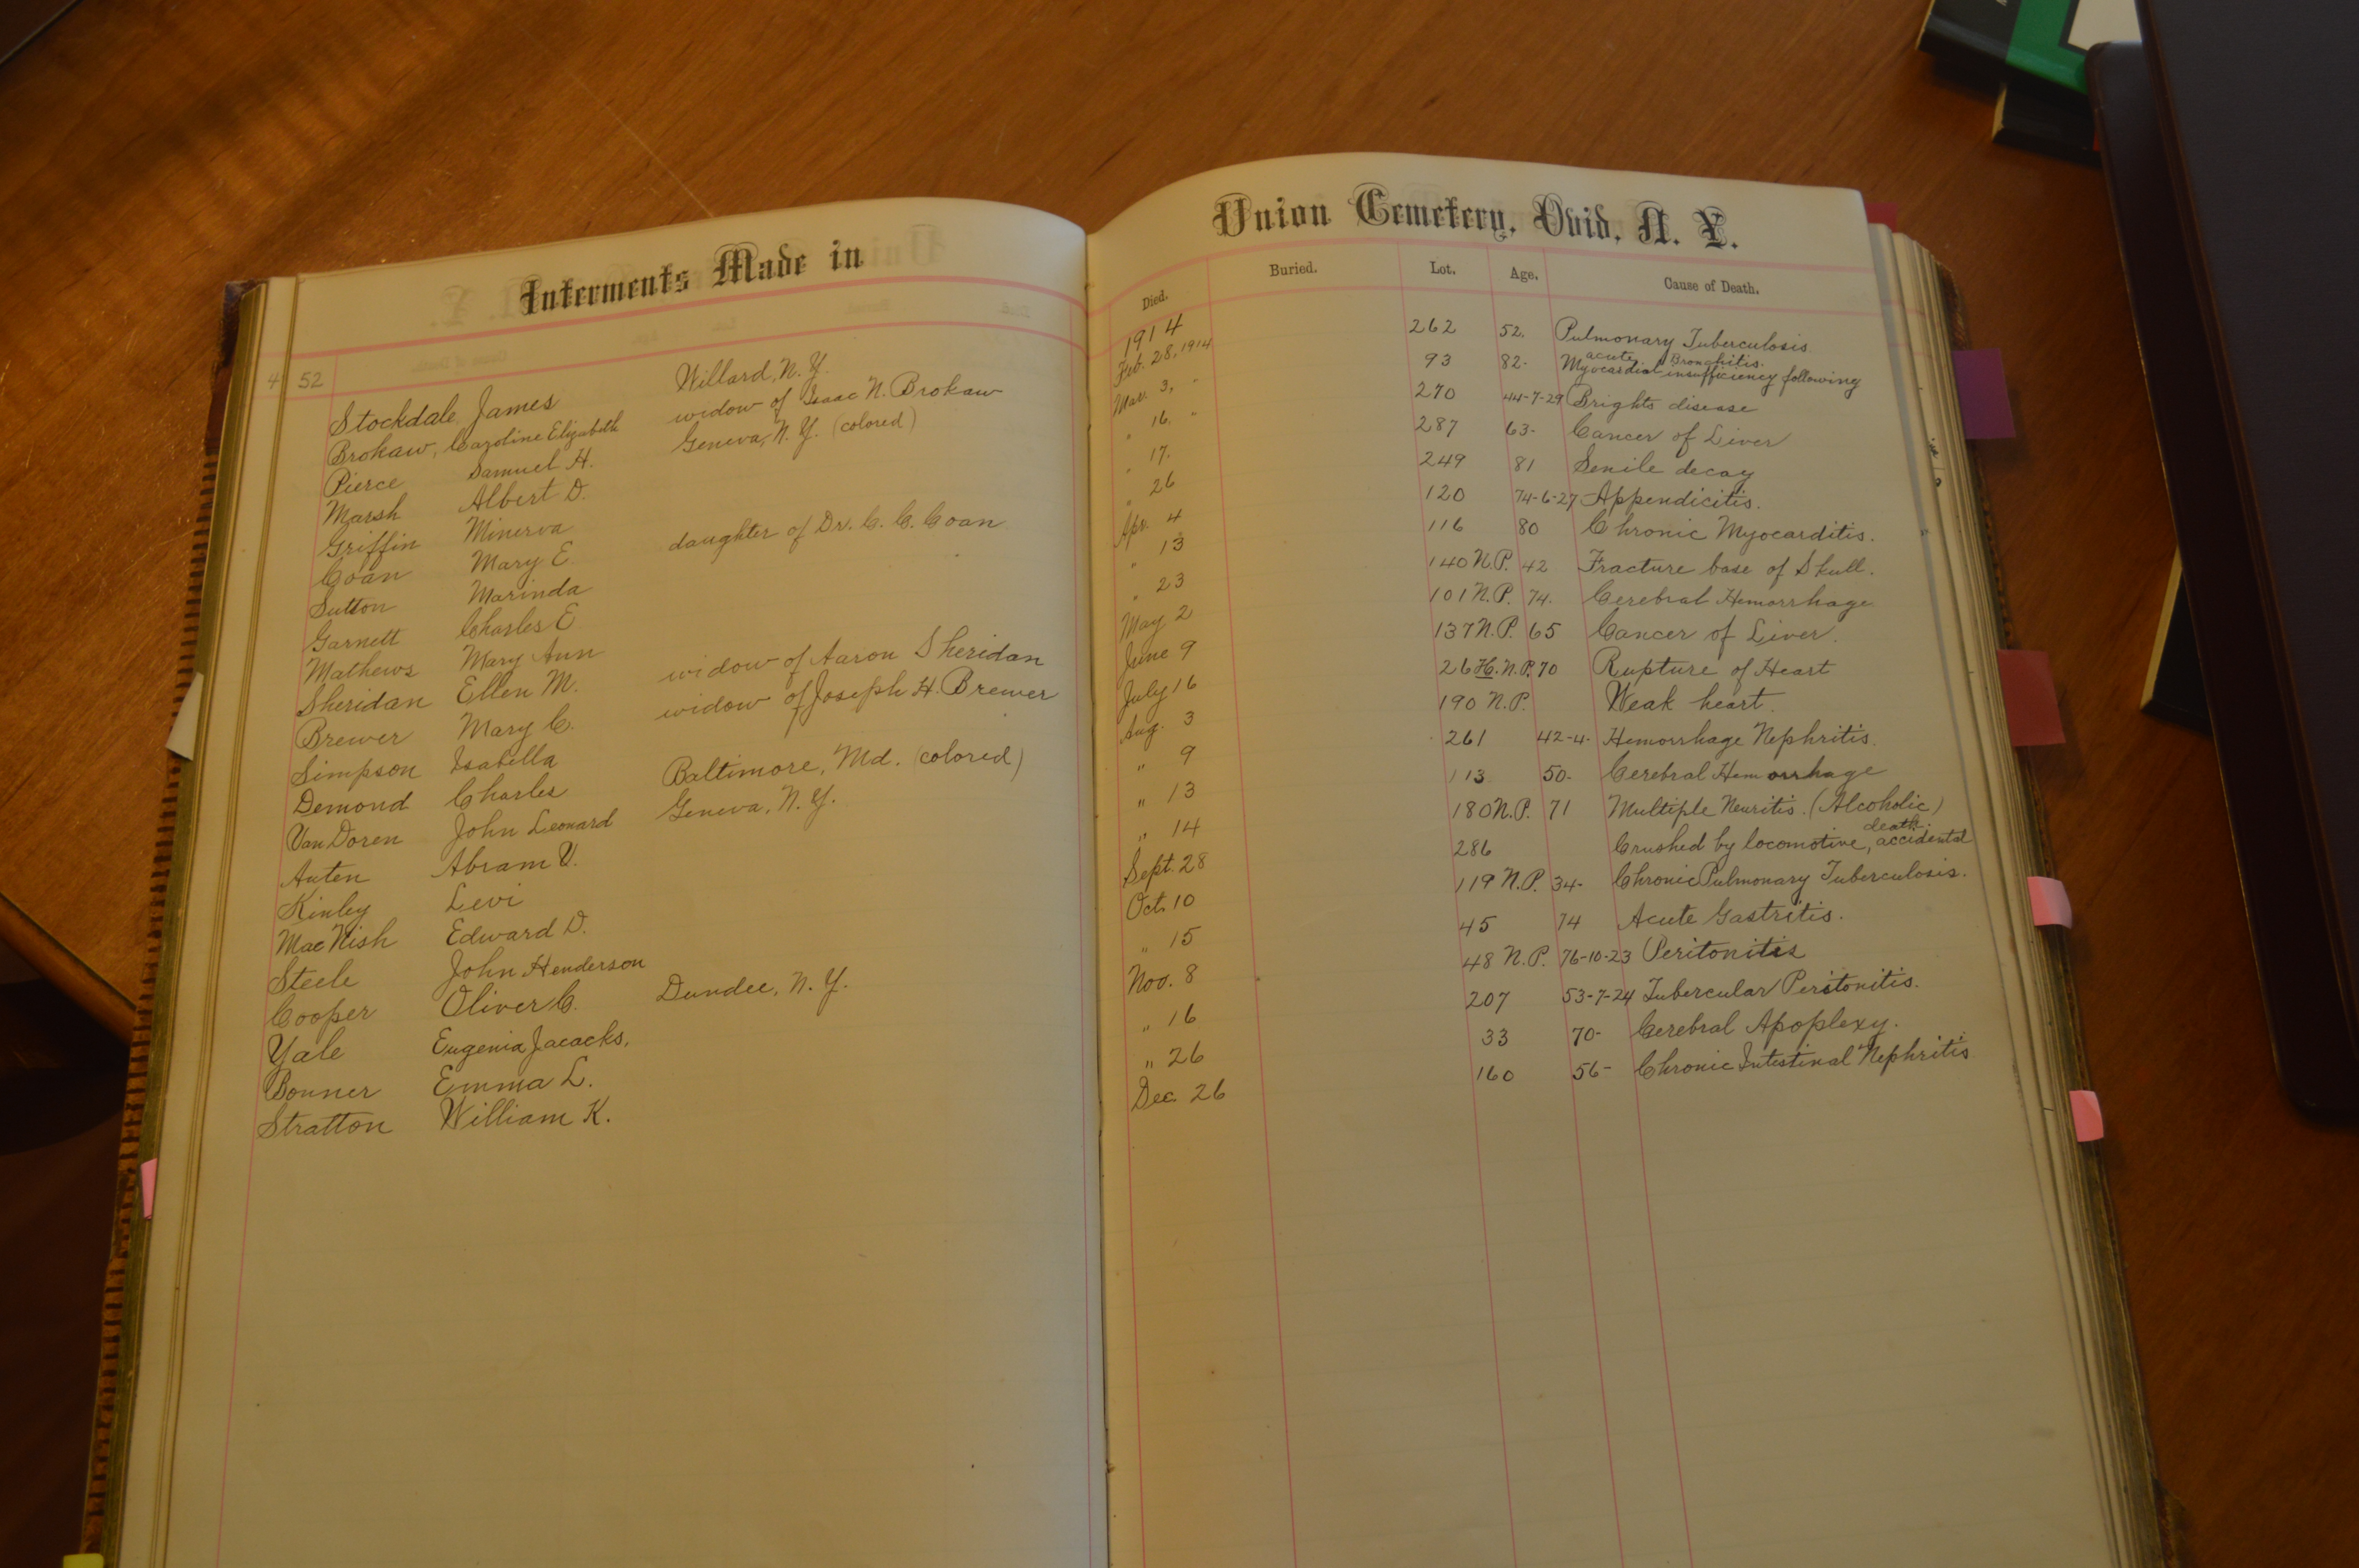 Interments Made in
4 52
Stockdale, James Willard, N.Y.
Brokaw, Caroline Elizabeth widow of Isaac N. Brokaw
Pierce Samuel H. Geneva, N.Y. (colored)
Marsh Albert D.
Griffin Minerva
Coan Mary E. daughter of Dr. C. C. Coan
Sutton Marinda
Garnett Charles E
Mathews Mary Ann
Sheridan Ellen M. widow of Aaron Sheridan
Brewer Mary C. widow of Joseph H. Brewer
Simpson Isabella
Demond Charles Baltimore, Md. (colored)
Van Doren John Leonard Geneva, N.Y.
Auten Abram V.
Kinley Levi
MacNish Edward D.
Steele John Henderson
Cooper Oliver C. Dundee, N.Y.
Yale Eugenia Jacacks,
Bonner Emma L.
Stratton William K.
Union Cemetery, Ovid, N. Y.
Died. Buried. Lot. Age. Cause of Death.
1914
Feb. 28, 1914 262 52. Pulmonary Tuberculosis
Mar. 3, " 93 82. Myocardial insufficiency following acute Bronchitis.
" 16, " 270 44-7-29 Brights disease
" 17. 287 63- Cancer of Liver
" 26 249 81 Senile decay
Apr. 4 120 74-6-27 Appendicitis.
" 13 116 80 Chronic Myocarditis.
" 23 140 N.P. 42 Fracture base of Skull.
May 2 101 N.P. 74. Cerebral Hemorrhage
June 9 137 N.P. 65 Cancer of Liver.
July 16 26 H. N.P. 70 Rupture of Heart
Aug. 3 190 N.P. Weak heart.
" 9 261 42-4- Hemorrhage Nephritis.
" 13 113 50- Cerebral Hemorrhage
" 14 180 N.P. 71 Multiple Neuritis. (Alcoholic)
Sept. 28 286 Crushed by locomotive, accidental death.
Oct. 10 119 N.P. 34- Chronic Pulmonary Tuberculosis.
" 15 45 74 Acute Gastritis.
Nov. 8 48 N.P. 76-10-23 Peritonitis
" 16 207 53-7-24 Tubercular Peritonitis.
" 26 33 70- Cerebral Apoplexy.
Dec. 26 160 56- Chronic Intestinal Nephritis